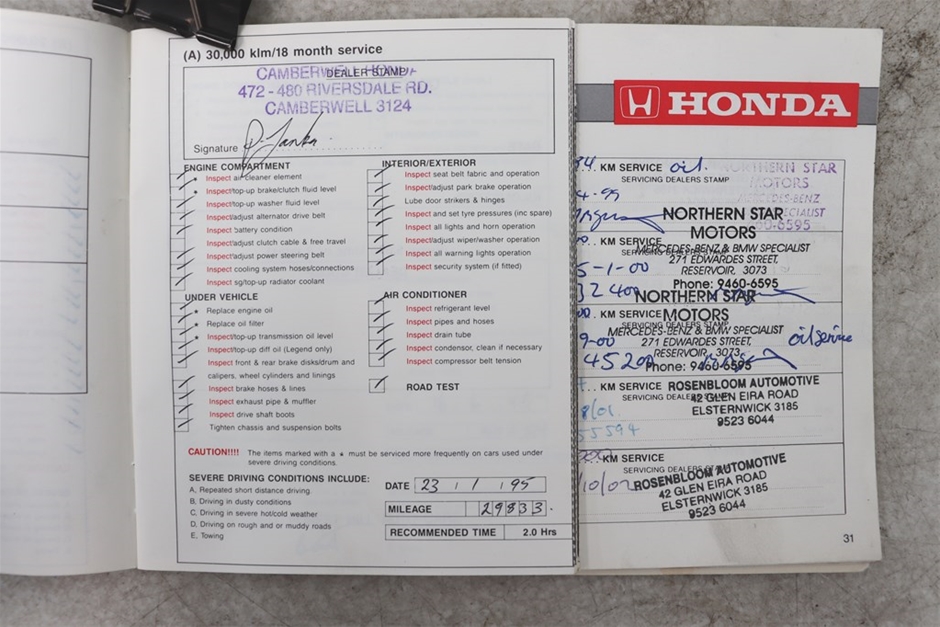 (A) 30,000 klm/18 month service
DEALER STAMP
CAMBERWELL HONDA
472 - 480 RIVERSDALE RD.
CAMBERWELL 3124
Signature
ENGINE COMPARTMENT
Inspect air cleaner element
Inspect/top-up brake/clutch fluid level
Inspect/top-up washer fluid level
Inspect/adjust alternator drive belt
Inspect battery condition
Inspect/adjust clutch cable & free travel
Inspect/adjust power steering belt
Inspect cooling system hoses/connections
Inspect sg/top-up radiator coolant
UNDER VEHICLE
Replace engine oil
Replace oil filter
Inspect/top-up transmission oil level
Inspect/top-up diff oil (Legend only)
Inspect front & rear brake disks/drum and
calipers, wheel cylinders and linings
Inspect brake hoses & lines
Inspect exhaust pipe & muffler
Inspect drive shaft boots
Tighten chassis and suspension bolts
INTERIOR/EXTERIOR
Inspect seat belt fabric and operation
Inspect/adjust park brake operation
Lube door strikers & hinges
Inspect and set tyre pressures (inc spare)
Inspect all lights and horn operation
Inspect/adjust wiper/washer operation
Inspect all warning lights operation
Inspect security system (if fitted)
AIR CONDITIONER
Inspect refrigerant level
Inspect pipes and hoses
Inspect drain tube
Inspect condensor, clean if necessary
Inspect compressor belt tension
ROAD TEST
CAUTION!!!! The items marked with a * must be serviced more frequently on cars used under
severe driving conditions.
SEVERE DRIVING CONDITIONS INCLUDE:
A, Repeated short distance driving
B, Driving in dusty conditions
C, Driving in severe hot/cold weather
D, Driving on rough and or muddy roads
E, Towing
DATE 23 / 1 / 95
MILEAGE 29833
RECOMMENDED TIME 2.0 Hrs
HONDA
KM SERVICE oil.
SERVICING DEALERS STAMP
NORTHERN STAR
MOTORS
MERCEDES-BENZ
4-99
NORTHERN STAR
MOTORS
MERCEDES-BENZ & BMW SPECIALIST
271 EDWARDES STREET,
RESERVOIR, 3073
Phone: 9460-6595
KM SERVICE
SERVICING DEALERS STAMP
5-1-00
32400
NORTHERN STAR
MOTORS
MERCEDES-BENZ & BMW SPECIALIST
271 EDWARDES STREET,
RESERVOIR, 3073
Phone: 9460-6595
KM SERVICE
SERVICING DEALERS STAMP
9-00
oil service
45200
KM SERVICE
SERVICING DEALERS STAMP
ROSENBLOOM AUTOMOTIVE
42 GLEN EIRA ROAD
ELSTERNWICK 3185
9523 6044
8/01
55594
KM SERVICE
SERVICING DEALERS STAMP
ROSENBLOOM AUTOMOTIVE
42 GLEN EIRA ROAD
ELSTERNWICK 3185
9523 6044
/10/02
31